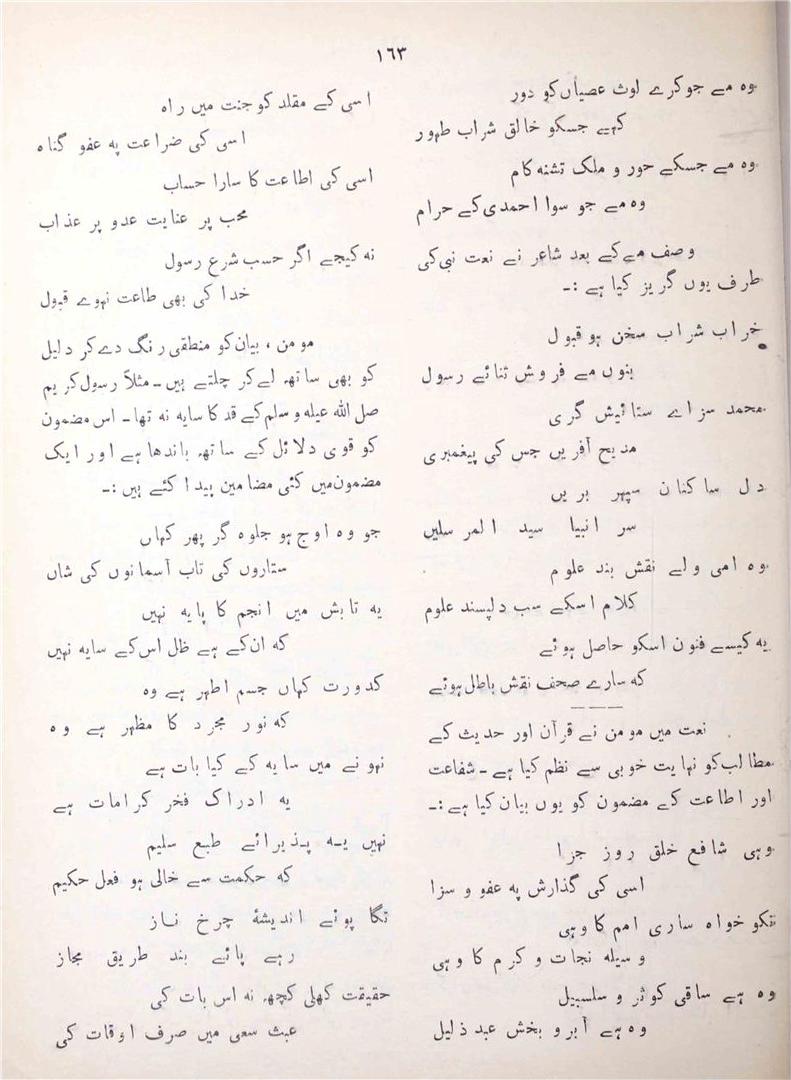 ١٦٣
وہ مے جو کرے لوث عصیاں کو دور
کہے جسکو خالق شراب طہور
وہ مے جسکے حور و ملک تشنہ کام
وہ مے جو سوا احمدی کے حرام
وصف مے کے بعد شاعر نے نعت نبی کی
طرف یوں گریز کیا ہے :-
خراب شراب سخن ہو قبول
بنوں مے فروش ثنائے رسول
محمد سزاے ستائیش گری
مدیح آفریں جس کی پیغمبری
دل ساکنان سپہر بریں
سر انبیا سید المرسلیں
وہ امی ولے نقش بند علوم
کلام اسکے سب دلپسند علوم
یہ کیسے فنون اسکو حاصل ہوئے
کہ سارے صحف نقش باطل ہوئے
نعت میں مومن نے قرآن اور حدیث کے
مطالب کو نہایت خوبی سے نظم کیا ہے - شفاعت
اور اطاعت کے مضمون کو یوں بیان کیا ہے :-
وہی شافع خلق روز جزا
اسی کی گذارش پہ عفو و سزا
نکو خواہ ساری امم کا وہی
وسیلہ نجات و کرم کا وہی
وہ ہے ساقی کوثر و سلسبیل
وہ ہے آبرو بخش عبد ذلیل
اسی کے مقلد کو جنت میں راہ
اسی کی ضراعت پہ عفو گناہ
اسی کی اطاعت کا سارا حساب
محب پر عنایت عدو پر عذاب
نہ کیجے اگر حسب شرع رسول
خدا کی بھی طاعت نہوے قبول
مومن ، بیان کو منطقی رنگ دے کر دلیل
کو بھی ساتھ لے کر چلتے ہیں - مثلاً رسول کریم
صل اللہ عیلہ وسلم کے قد کا سایہ نہ تھا - اس مضمون
کو قوی دلائل کے ساتھ باندھا ہے اور ایک
مضمون میں کئی مضامین پیدا کئے ہیں :-
جو وہ اوج ہو جلوہ گر پھر کہاں
ستاروں کی تاب آسمانوں کی شاں
یہ تابش میں انجم کا پایہ نہیں
کہ ان کے ہے ظل اس کے سایہ نہیں
کدورت کہاں جسم اطہر ہے وہ
کہ نور مجرد کا مظہر ہے وہ
نہونے میں سایہ کے کیا بات ہے
یہ ادراک فخر کرامات ہے
نہیں یہ پذیرائے طبع سلیم
کہ حکمت سے خالی ہو فعل حکیم
تگا پوئے اندیشۂ چرخ ناز
رہے پائے بند طریق مجاز
حقیقت کھلی کچھ نہ اس بات کی
عبث سعی میں صرف اوقات کی